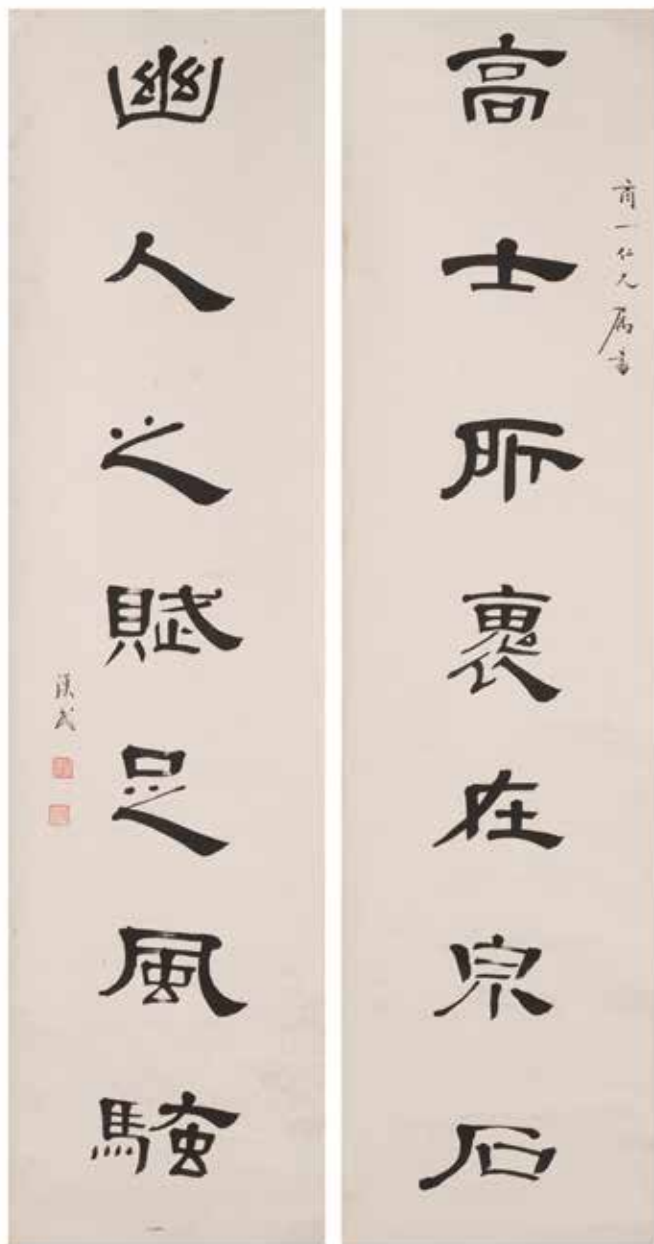 高士所褱在泉石
一仁兄屬書
幽人之賦足風騷
漢民